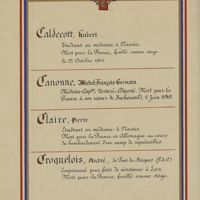 Caldecott, hubert
Étudiant en médecine à Nantes.
Mort pour la France, fusillé comme otage
le 22 Octobre 1941.
Canonne, Michel François Germain
Médecin Cap^ne, déporté. Mort pour la
France à son retour de Buchenwald, 8 Juin 1945.
Claire, Pierre
Étudiant en médecine à Nantes.
Mort pour la France en Allemagne au cours
de bombardement d'un camp de représailles.
Croquelois, André, de Pont-de-Briques (P.d.C)
Emprisonné pour faits de résistance à Loos.
Mort pour la France, fusillé comme otage.